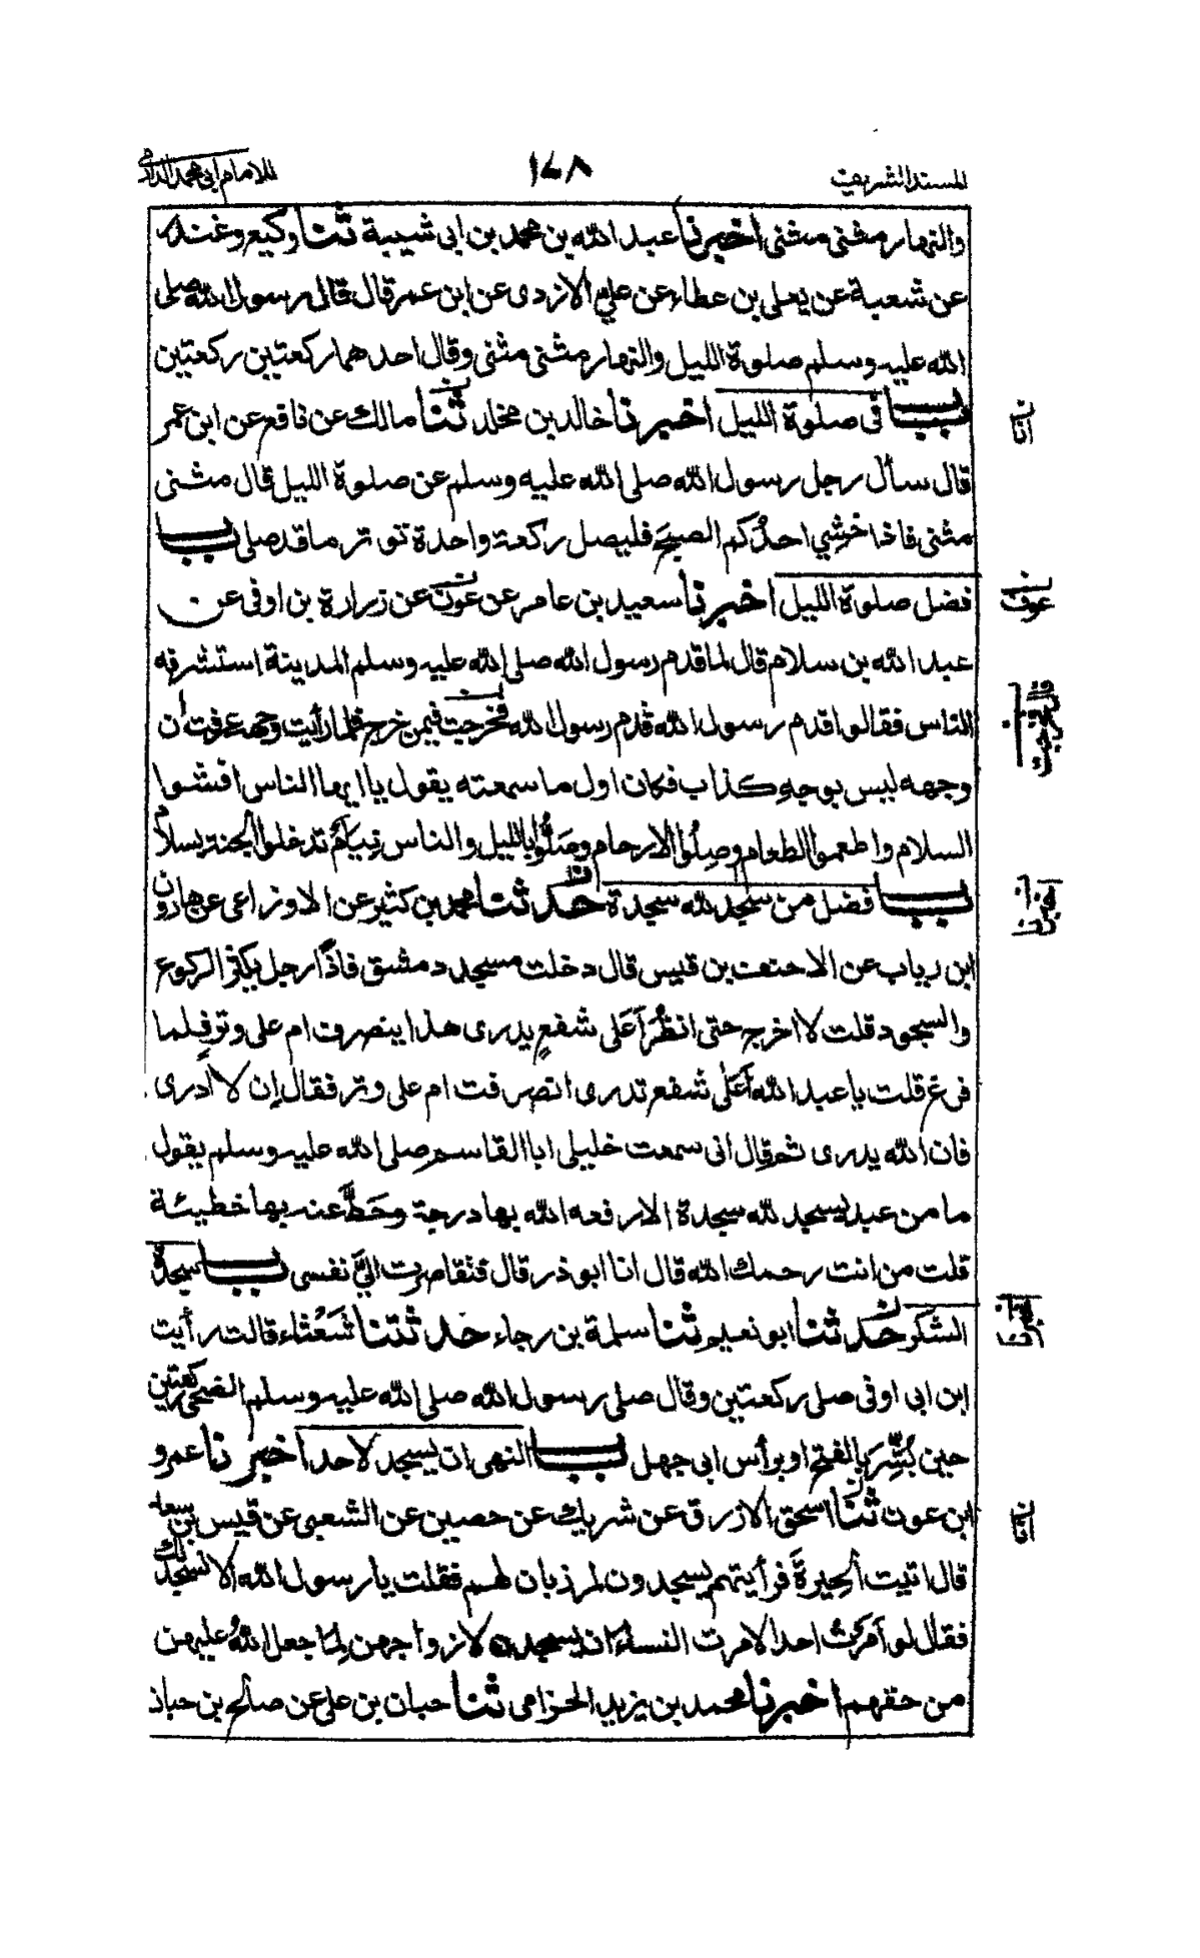 المسند الشريف
١٤٨
للامام ابى محمد الدارمى
والنهار مثنى مثنى اخبرنا عبد الله بن محمد بن ابى شيبة ثنا وكيع وغندر
عن شعبة عن يعلى بن عطاء عن علي الازدى عن ابن عمر قال قال رسول الله صلى
الله عليه وسلم صلوة الليل والنهار مثنى مثنى وقال احدهما ركعتين ركعتين
باب فى صلوة الليل اخبرنا خالد بن مخلد ثنا مالك عن نافع عن ابن عمر
قال سأل رجل رسول الله صلى الله عليه وسلم عن صلوة الليل قال مثنى
مثنى فاذا خشي احدكم الصبح فليصل ركعة واحدة توتر ما قد صلى باب
فضل صلوة الليل اخبرنا سعيد بن عامر عن عون عن زرارة بن اوفى عن
عبد الله بن سلام قال لما قدم رسول الله صلى الله عليه وسلم المدينة استشرفه
الناس فقالوا قدم رسول الله قدم رسول الله فخرجت فيمن خرج فلما رأيت وجهه عرفت ان
وجهه ليس بوجهِ كذاب فكان اول ما سمعته يقول يا ايها الناس افشوا
السلام واطعموا الطعام وصِلُوا الارحام وصَلُّوا بالليل والناس نِيَامٌ تدخلوا الجنة بسلام
باب فضل من سجد لله سجدة حدثنا محمد بن كثير عن الاوزاعى عن هارون
ابن رياب عن الاحنف بن قيس قال دخلت مسجد دمشق فاذا رجل يكثر الركوع
والسجود قلت لا اخرج حتى انظُرَ أعَلى شفعٍ يدرى هذا ينصرف ام على وتر فلما
فرغ قلت يا عبد الله أعَلَى شفع تدرى انصرفت ام على وتر فقال إن لا أدرى
فان الله يدرى ثم قال انى سمعت خليلى ابا القاسم صلى الله عليه وسلم يقول
ما من عبد يسجد لله سجدة الا رفعه الله بها درجة وحَطَّ عنه بها خطيئة
قلت من انت رحمك الله قال انا ابو ذر قال فتقاصرت اليَّ نفسى باب سجدة
الشكر حدثنا ابو نعيم ثنا سلمة بن رجاء حدثتنا شَعْثاء قالت رأيت
ابن ابى اوفى صلى ركعتين وقال صلى رسول الله صلى الله عليه وسلم الضحى ركعتين
حين بُشِّرَ بالفتح او برأس ابى جهل باب النهى ان يسجد لاحد اخبرنا عمرو
ابن عون ثنا اسحق الازرق عن شريك عن حصين عن الشعبى عن قيس بن سعد
قال اتيت الحِيرةَ فرأيتهم يسجدون لمرزبان لهم فقلت يا رسول الله الا نسجد لك
فقال لو أمَرْتُ احدا لامرت النساء ان يسجدن لازواجهن لِمَا جعل اللهُ عليهن
من حقهم اخبرنا محمد بن يزيد الحزامى ثنا حبان بن على عن صالح بن حبان
انا
عوف
اخبرنا
اخبرنا
انا